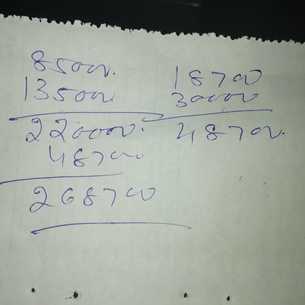 85000.
135000
220000.
48700
268700
18700
30000
48700.